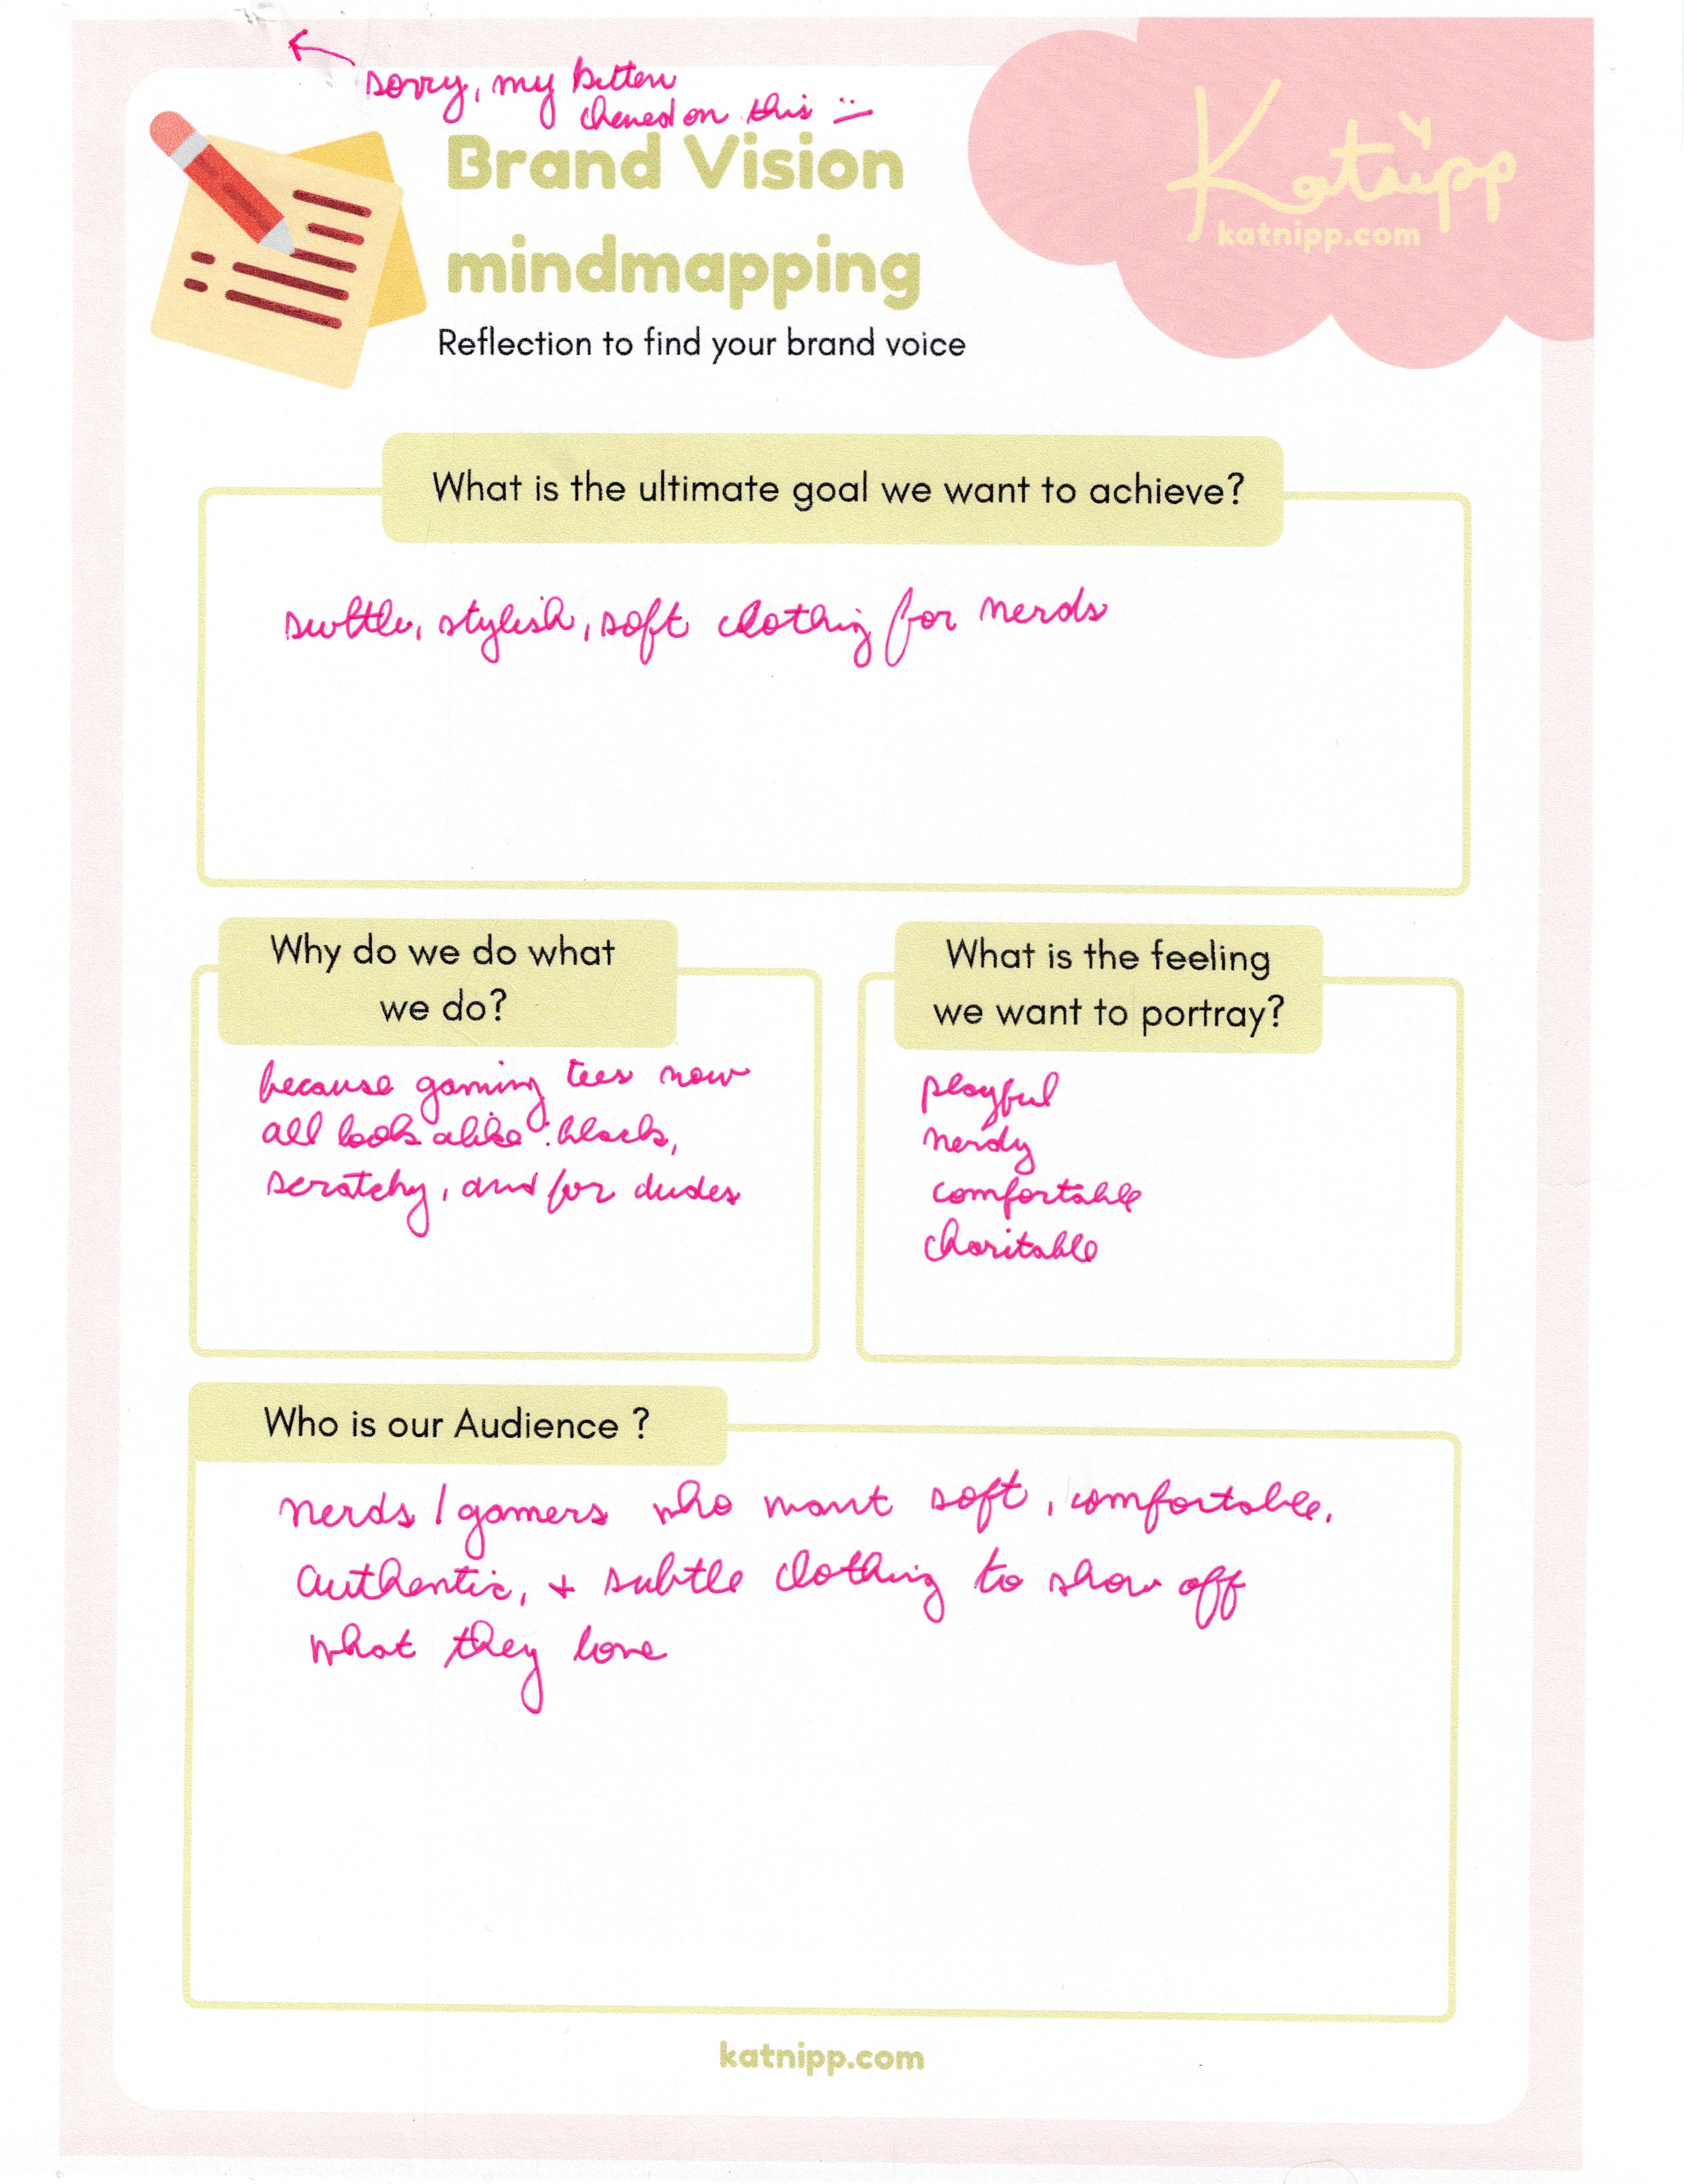 sorry, my kitten
chewed on this :-
Brand Vision
mindmapping
Reflection to find your brand voice
Katnipp
katnipp.com
What is the ultimate goal we want to achieve?
subtle, stylish, soft clothing for nerds
Why do we do what
we do?
because gaming tees now
all look alike: black,
scratchy, and for dudes
What is the feeling
we want to portray?
playful
nerdy
comfortable
charitable
Who is our Audience ?
nerds / gamers who want soft, comfortable,
authentic, + subtle clothing to show off
what they love
katnipp.com